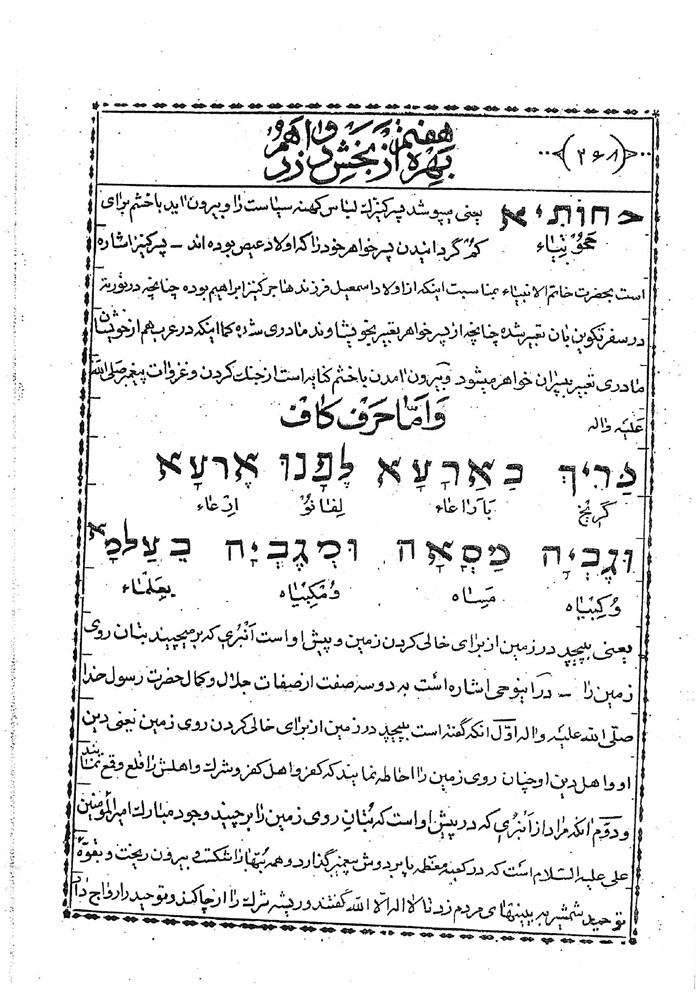 ﴿۲۶۸﴾ هفتم و اهم
بهره از بخش زد
כחותיא یعنی میپوشد پسر کنیزك لباس کهنه سیاست را و بیرون اید باخشم برای
کم گردانیدن پسر خواهر خود را که اولاد عیص بوده اند - پسر کنیز اشاره
است بحضرت خاتم الانبیاء بمناسبت اینکه از اولاد اسمعیل فرزند هاجر کنیز ابراهیم بوده چنانچه در توریة
در سفر تکوین بان تعبیر شده چنانچه از پسر خواهر تعبیر بخویشاوند مادری شده کما اینکه در عرب هم از خویشان
مادری تعبیر بپسران خواهر میشود و بیرون امدن باخشم کنایه است از جنك کردن و غزوات پیغمبر صلی الله
علیه واله
وَ امّا حرف کاف
כַּרִיךְ בַּאַרְעָא לְפָנוּ אַרְעָא
بَارْاعاء لِفانوُ ارْعاء
וּגָבְיָה מַסָאָה וּמְגַבְיָה בְעַלְמָא
مَسٰاه وُمکبیٰاه بعلمٰاء
یعنی بپیچد در زمین از برای خالی کردن زمین و پیش او است آنبُری که برمیچیند بتان روی
زمین را - در این وحی اشاره است به دو سه صفت از صفات جلال و کمال حضرت رسول خدا
صلی الله علیه واله اوّل انکه گفته است بپیچد در زمین از برای خالی کردن روی زمین یعنی دین
او و اهل دین او چنان روی زمین را احاطه نمایند که کفر و اهل کفر و شرك و اهلش را قلع وقمع نمایند
و دوّم انکه مراد از انبُری که در پیش او است که بُتان روی زمین را برچیند وجود مبارك امیرالمؤمنین
علی علیه السلام است که در کعبه معظمه پا بر دوش پیغمبر گذارد و همه بتها را شکسته بیرون ریخت و بقوة
توحید شمشیر بر بینیهای مردم زد تا لا اله الا الله گفتند و ریشه شرك را از جا کند و توحید را رواج داد